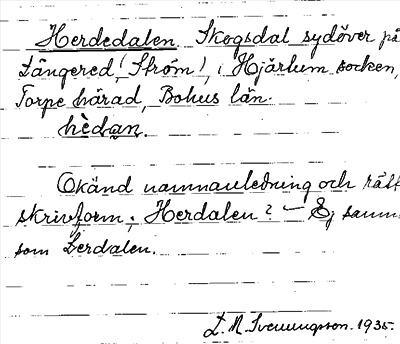 Herdedalen. Skogsdal sydöver på
Långered (Ström), i Hjärtum socken,
Torpe härad, Bohus län.
hèdan.
Okänd namnavledning och rätt
skrivform. Herdalen? — Ej samm
som Lerdalen.
L. N. Svenningsson. 1935.